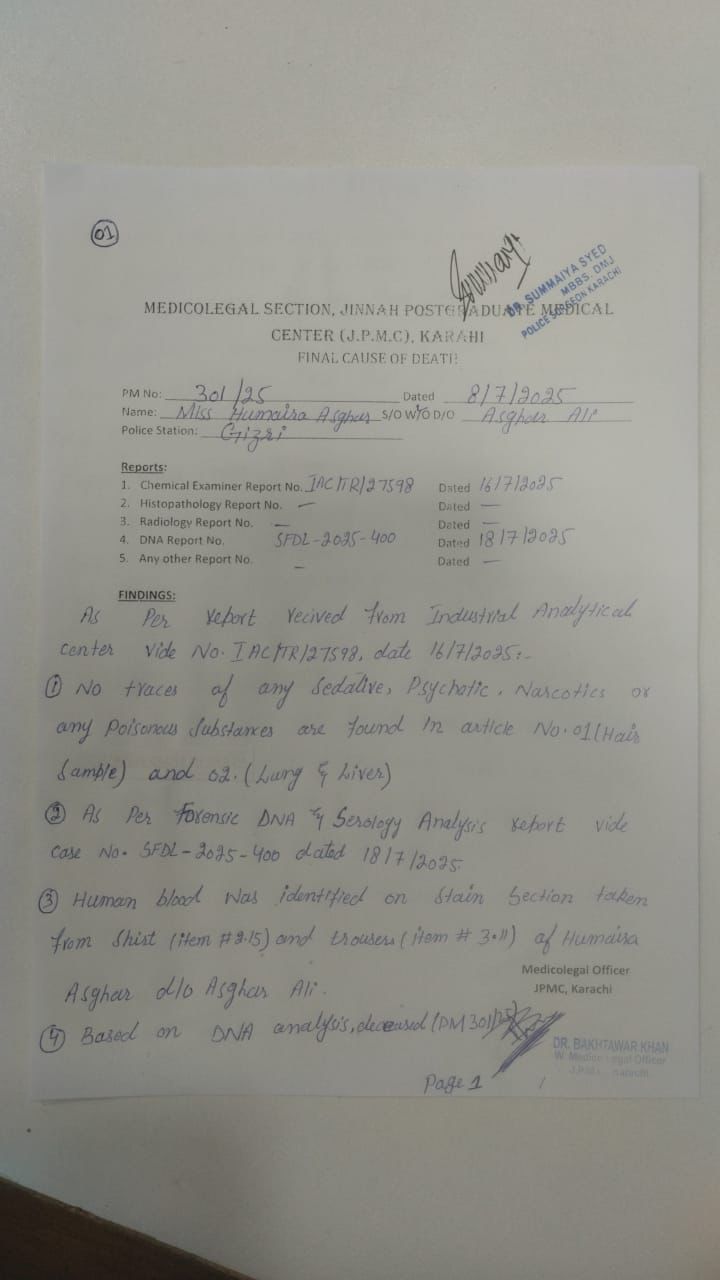 01
DR. SUMMAIYA SYED
MBBS. DMJ
POLICE SURGEON KARACHI
MEDICOLEGAL SECTION, JINNAH POSTGRADUATE MEDICAL
CENTER (J.P.M.C), KARAHI
FINAL CAUSE OF DEATH
PM No: 301/25 Dated 8/7/2025
Name: Miss Humaira Asghar S/O W/O D/O Asghar Ali
Police Station: Gizri
Reports:
1. Chemical Examiner Report No. IAC/TR/27598 Dated 16/7/2025
2. Histopathology Report No. — Dated —
3. Radiology Report No. — Dated —
4. DNA Report No. SFDL-2025-400 Dated 18/7/2025
5. Any other Report No. — Dated —
FINDINGS:
As Per report recived from Industrial Analytical
center vide No. IAC/TR/27598, date 16/7/2025:-
① No traces of any Sedative, Psychotic, Narcotics or
any Poisonous Substances are found in article No. 01 (Hair
Sample) and 02. (Lung & Liver)
② As Per Forensic DNA & Serology Analysis report vide
case No. SFDL-2025-400 dated 18/7/2025.
③ Human blood was identified on Stain Section taken
from Shirt (item #2.15) and trousers (item # 3.11) of Humaira
Asghar d/o Asghar Ali.
Medicolegal Officer
JPMC, Karachi
④ Based on DNA analysis, deceased (PM 301/25)
DR. BAKHTAWAR KHAN
W. Medico Legal Officer
J.P.M.C Karachi
Page 1